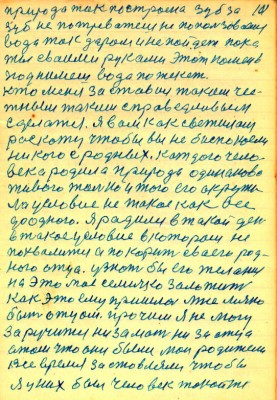 природа так построила зуб за 121
зуб не потревожем не пользовать
вода так даром и не пойдет пока
ты своими руками этот камень
поднимем вода потечет.
кто меня заставил таким чес-
тным таким справедливым
сделатся. Я вам как светилам
раскажу чтобы вы не беспокоели
никого с родных, каждого чело-
века родила природа одинаково
живого только у того его окружа-
ла условие не такое как все
подобного. Я радился в такой ден
в такое условие в котором не
похвалиш и покорит своего род-
ного отца. узнот бы его желани
на это мое семячко заложит
как это ему пришлос мне лично
быть отцом. прочим Я не могу
заручится ни за мат ни за отца
атом что они были мои родители
все время заставляли чтобы
Я у них был человек такой же